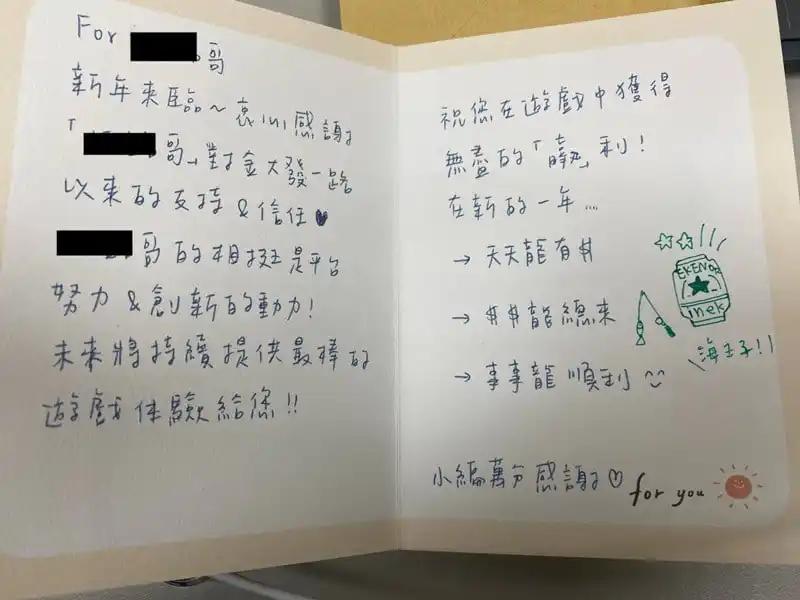 For 哥
新年來臨~衷心感謝
「哥」對金大發一路
以來的支持 & 信任
哥的相挺是平台
努力 & 創新的動力!
未來將持續提供最棒的
遊戲体驗給您!!
祝您在遊戲中獲得
無盡的「 」利!
在新的一年...
→ 天天龍有$
→ $$龍總來
→ 事事龍順利
海王子!!
小編萬分感謝♡
for you